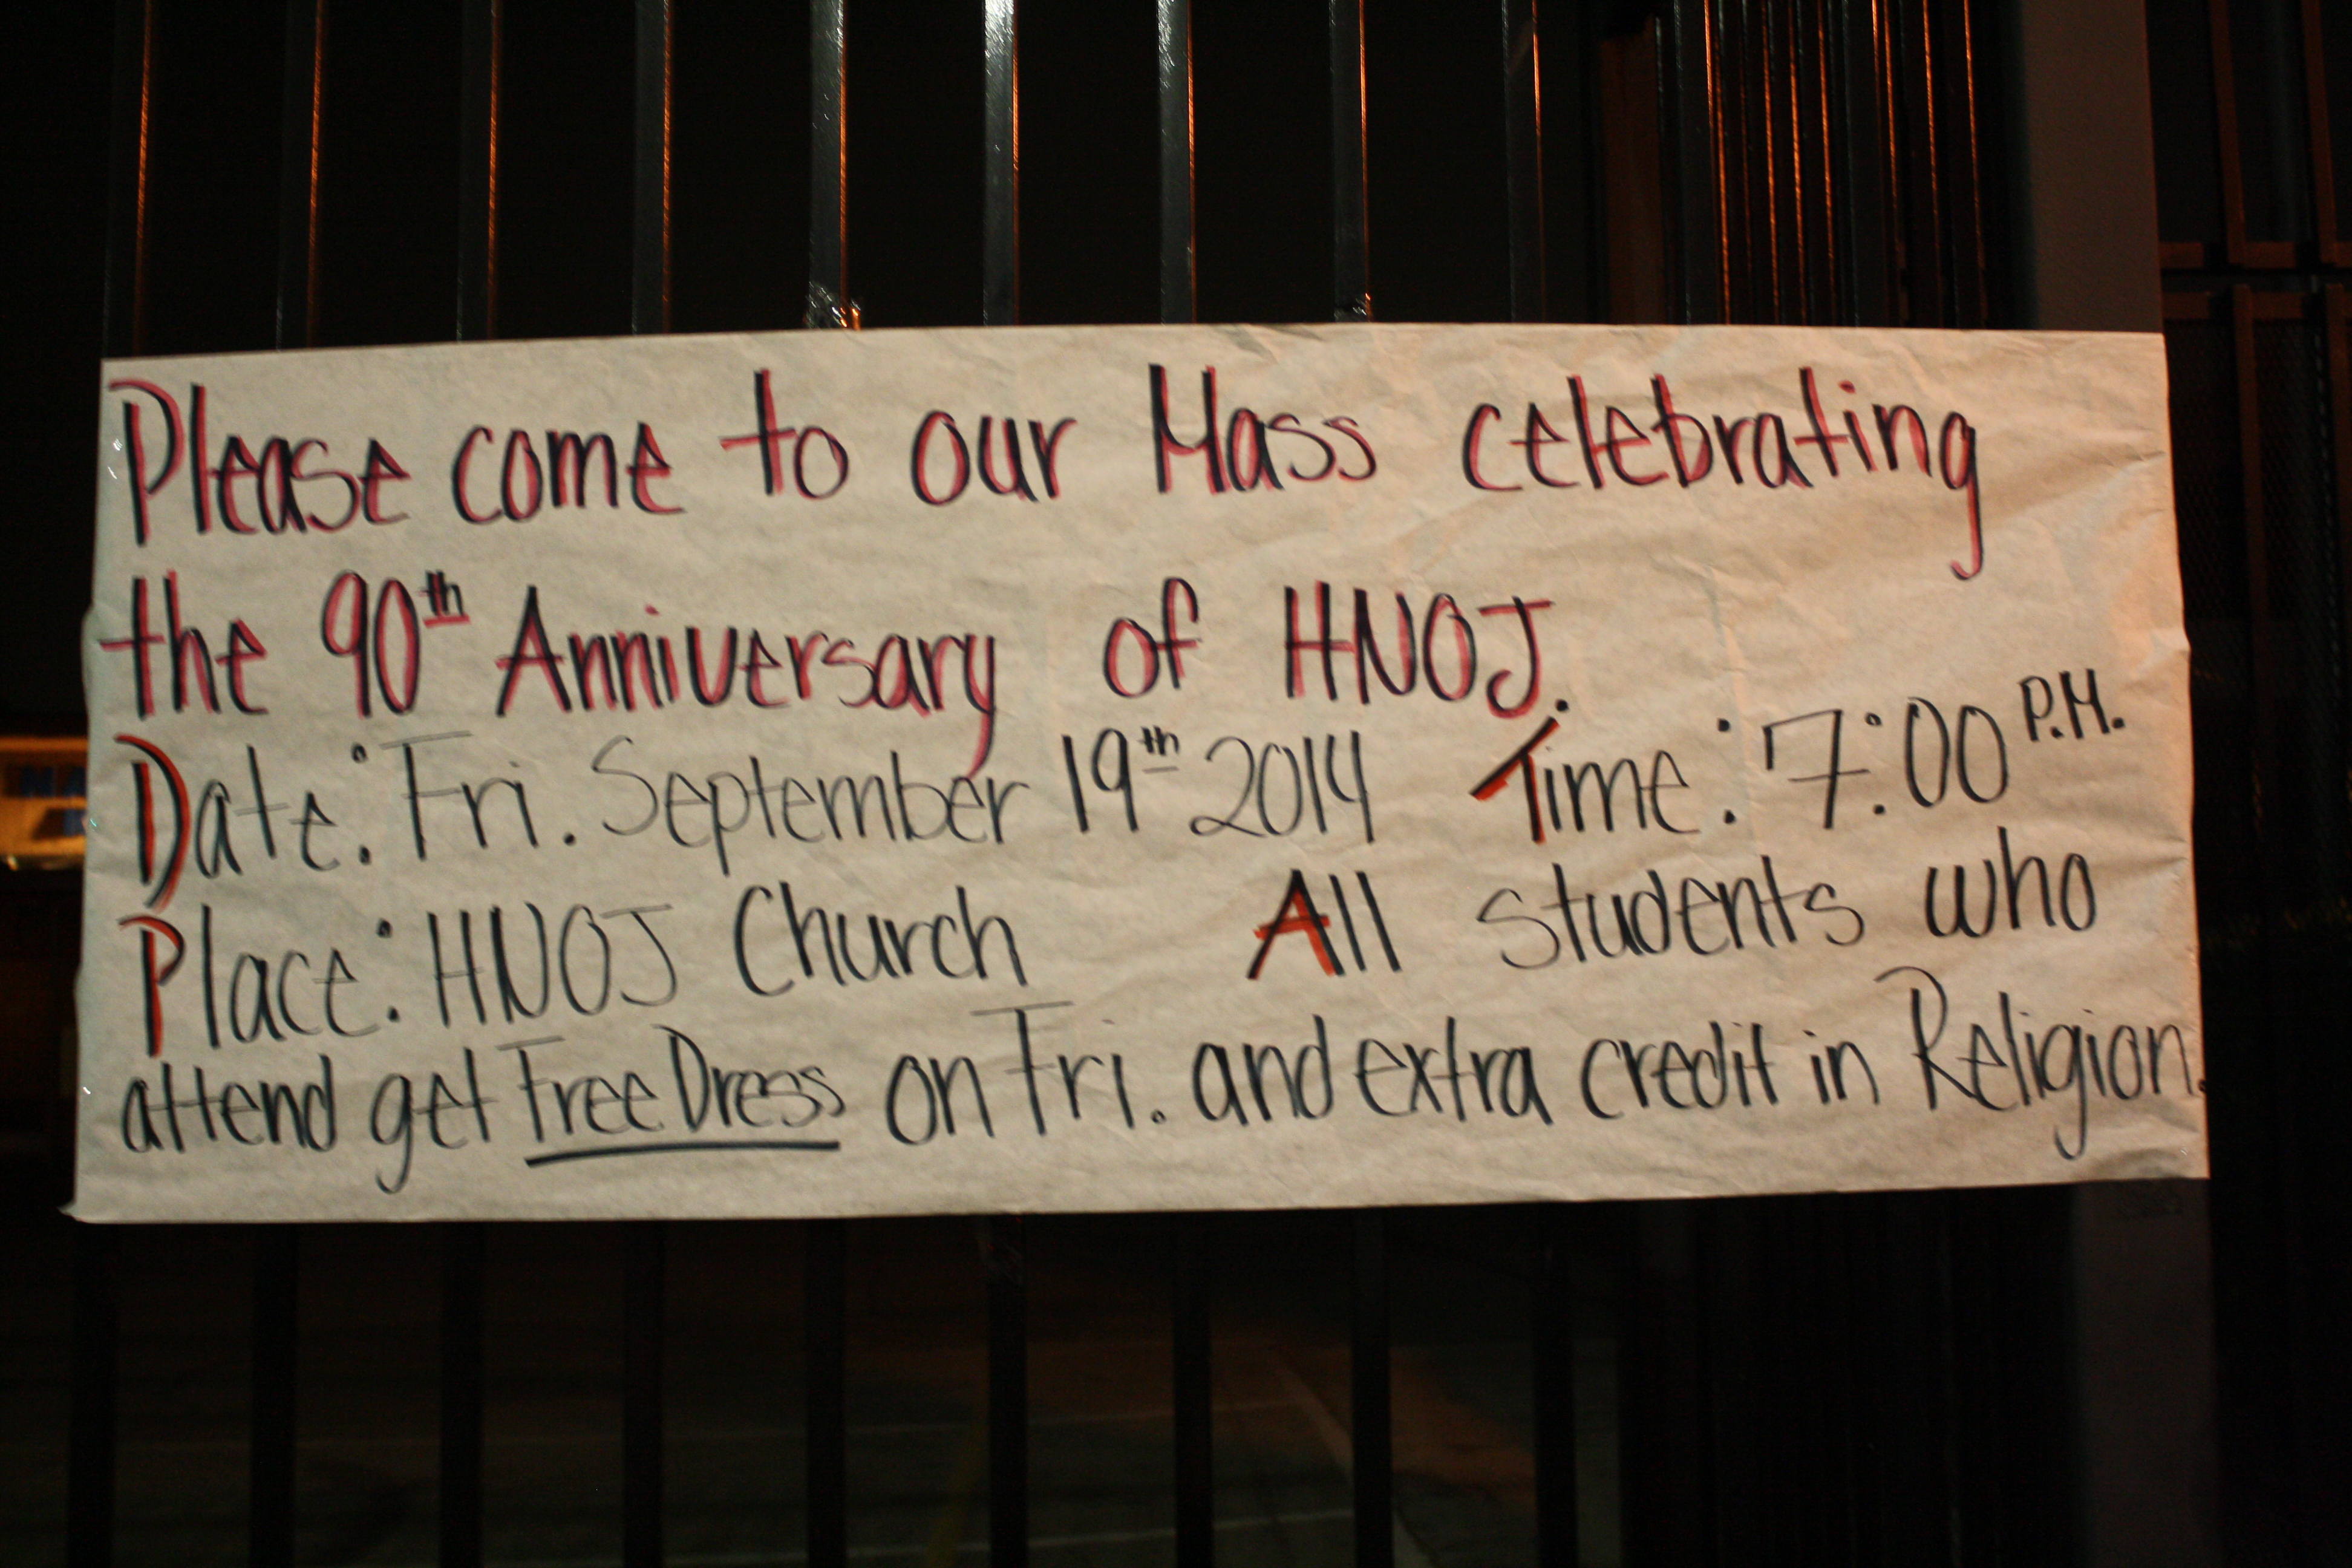 Please come to our Mass celebrating
the 90th Anniversary of HNOJ.
Date: Fri. September 19th 2014 Time: 7:00 P.M.
Place: HNOJ Church All students who
attend get Free Dress on Fri. and extra credit in Religion.